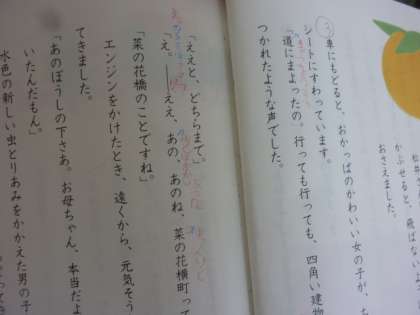 松井
かぶせると、飛ばないよ
おさえました。
3
車にもどると、おかっぱのかわいい女の子が、
シートにすわっています。
「道にまよったの。行っても行っても、四角い建物
つかれたような声でした。
「ええと、どちらまで。」
「え。――ええ、あの、あのね、菜の花横町って
「菜の花橋のことですね。」
エンジンをかけたとき、遠くから、元気そう
てきました。
「あのぼうしの下さあ。お母ちゃん、本当だよ
いたんだもん。」
水色の新しい虫とりあみをかかえた男の子